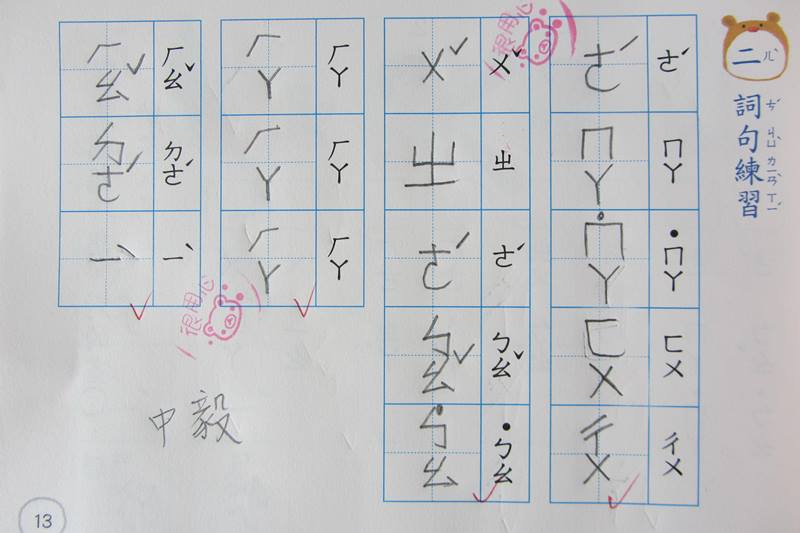 二 ㄦˋ
詞ㄘˊ句ㄐㄩˋ練ㄌㄧㄢˋ習ㄒㄧˊ
ㄜˊ ㄇㄚ ˙ㄇㄚ ㄈㄨ ㄔㄨ
ㄜˊ ㄇㄚ ˙ㄇㄚ ㄈㄨ ㄔㄨ
很用心
ㄨˇ ㄓ ㄜˊ ㄅㄠˇ ˙ㄅㄠ
ㄨˇ ㄓ ㄜˊ ㄅㄠˇ ˙ㄅㄠ
ㄏㄚ ㄏㄚ ㄏㄚ
ㄏㄚ ㄏㄚ ㄏㄚ
ㄏㄠˇ ㄉㄜˊ ㄧˋ
ㄏㄠˇ ㄉㄜˊ ㄧˋ
很用心
中毅
13